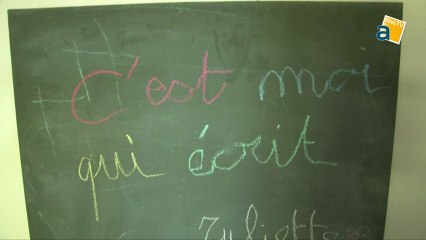 C'est moi
qui écrit
Juliette
a